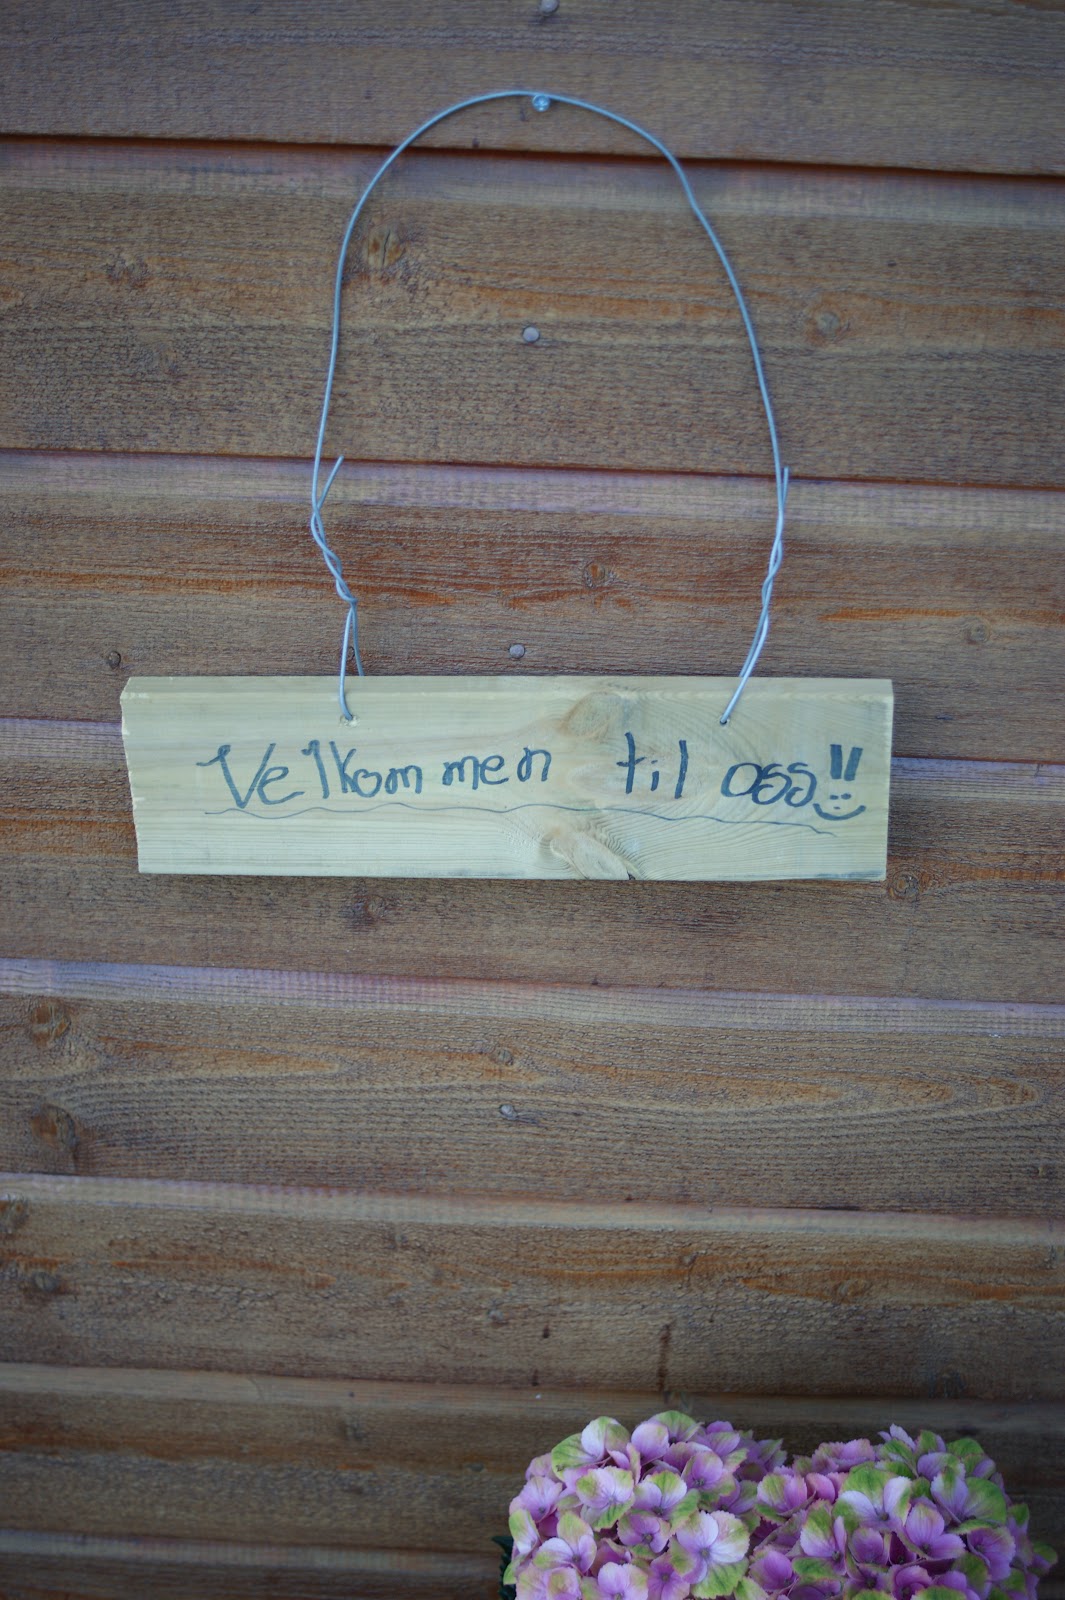 Velkommen til oss!!